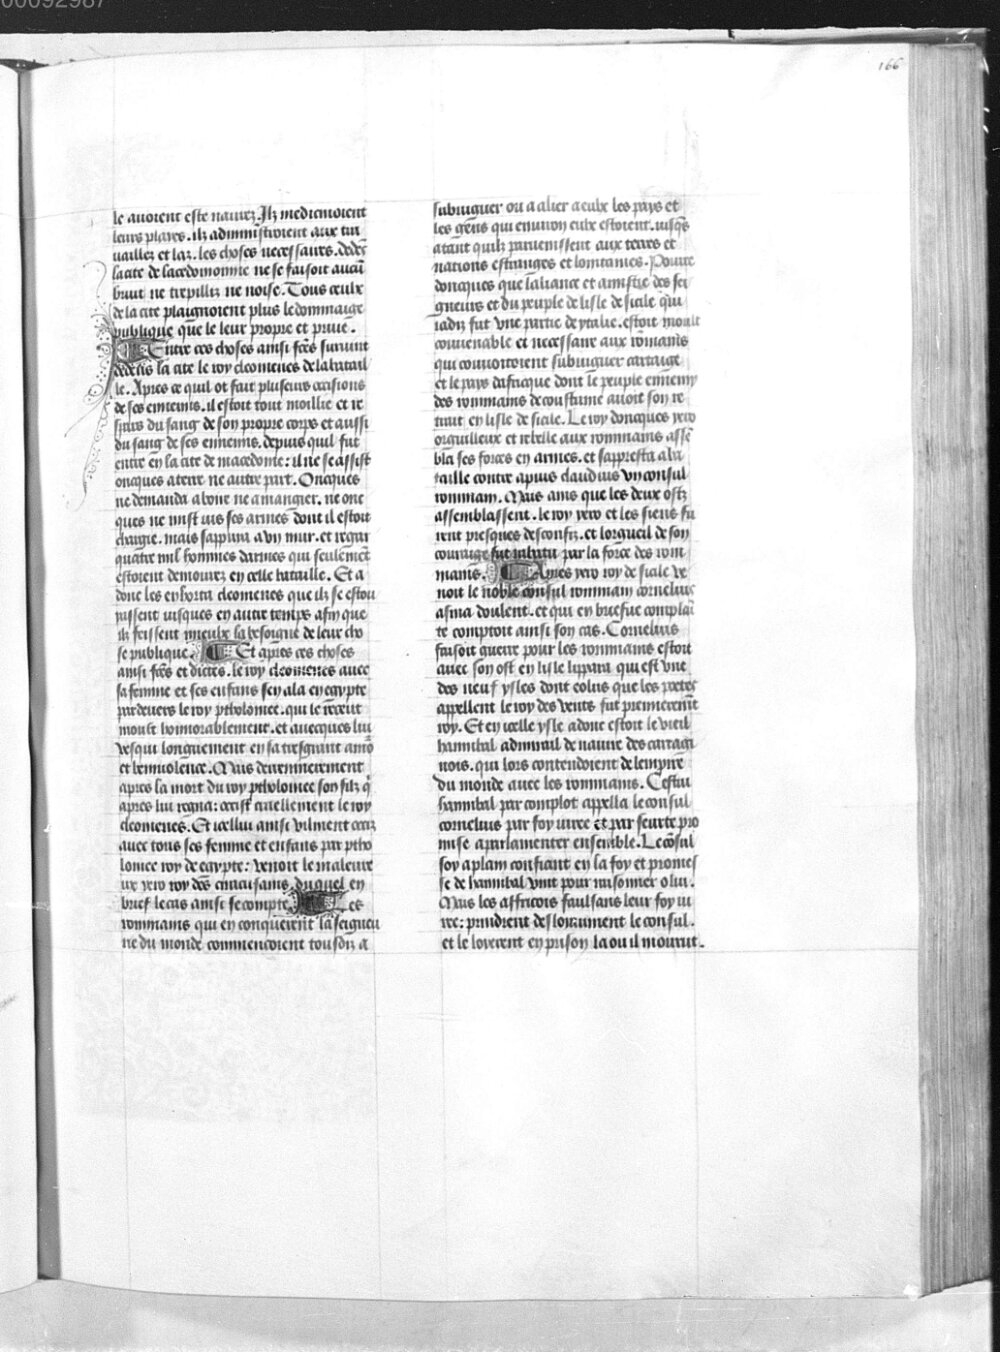 00092987
166
le auoient este naurez. Ilz medicinoient
leurs playes. ilz administroient aux tra
uaillez et laz. les choses necessaires. dedēs
la cite de lacedomonnie ne se faisoit aucū
bruit ne trepilliz ne noise. Tous ceulx
de la cite plaignoient plus le dommaige
publique que le leur propre et priue.
Entre ces choses ainsi fc̄es suruint
dedens la cite le roy cleomenes de la batail
le. Apres ce quil ot fait pluseurs occisions
de ses ennemis. il estoit tout moillie et re
du sang de son propre corps et aussi
du sang de ses ennemis. depuis quil fut
entre en la cite de macedone: il ne se assist
oncques a terre ne autre part. Oncques
ne demanda a boire ne a mangier. ne onc
ques ne mist ius ses armes dont il estoit
chargie. mais sappuia a vn mur. et regar
quatre mil hommes darmes qui seulemēt
estoient demourez en celle bataille. Et a
donc les enhorta cleomenes que ilz se estou
jusques en autre temps afin que
ilz feissent mieulx la besoigne de leur cho
se publique. Et apres ces choses
ainsi fc̄es et dictes. le roy cleomenes auec
sa femme et ses enfans sen ala en egypte
par deuers le roy ptholomee. qui le receut
moult honnorablement. et auecques lui
vesqui longuement en sa tresgrant amo
et beniuolence. Mais derrennierement
apres la mort du roy ptholomee son filz q̄
apres lui regna: occist cruellement le roy
cleomenes. Et icellui ainsi vilment occiz
auec tous ses femme et enfans par ptho
lomee roy de egypte: venoit le maleure
ux yero roy des ciracusains. duquel en
brief le cas ainsi se compte. Les
rommains qui en conquerent la seigneu
rie du monde commencoient tousdiz a
subiuguer ou a alier a eulx les pays et
les gens qui enuiron eulx estoient. iusq̄s
atant quilz paruenissent aux terres et
nations estranges et loingtaines. Pource
doncques que laliance et amistie des sei
gneurs et du peuple de lisle de sicile qui
iadiz fut vne partie de ytalie. estoit moult
conuenable et necessaire aux rōmains
qui conuoitoient subiuguer cartaige
et le pays daffricque dont le peuple ennemy
des rommains de coustume auoit son re
trait en lisle de sicile. Le roy doncques yero
orguilleux et rebelle aux rommains assē
bla ses forces en armes. et sappresta a ba
taille contre apius claudius vn consul
rommain. Mais ains que les deux ostz
assemblassent. le roy yero et les siens fu
rent presques desconfiz. et lorgueil de son
couraige fut rabatu par la force des rom
mains. Apres yero roy de sicile ve
noit le noble consul rommain cornelius
asina doulent. et qui en briefue complaī
te comptoit ainsi son cas. Cornelius
faisoit guerre pour les rommains estoit
auec son ost en lisle lippara qui est vne
des neuf ysles dont eolus que les poetes
appellent le roy des vents fut premieremēt
roy. Et en icelle ysle adonc estoit le vieil
hannibal admirail de nauire des cartagi
nois. qui lors contendoient de lempire
du monde auec les rommains. Cestui
hannibal par complot appella le consul
cornelius par foy iuree et par seurte pro
mise a parlamenter ensemble. Le cōsul
soy a plain confiant en la foy et promes
se de hannibal vint pour raisonner o lui.
Mais les affricois faulsans leur foy iu
ree: prindrent desloyaument le consul.
et le lyerent en prison la ou il mourut.